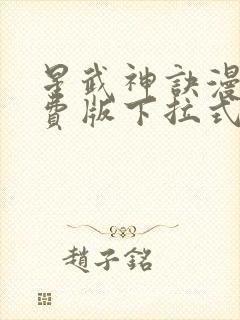 星武神訣漫
費版下拉式
趙子銘